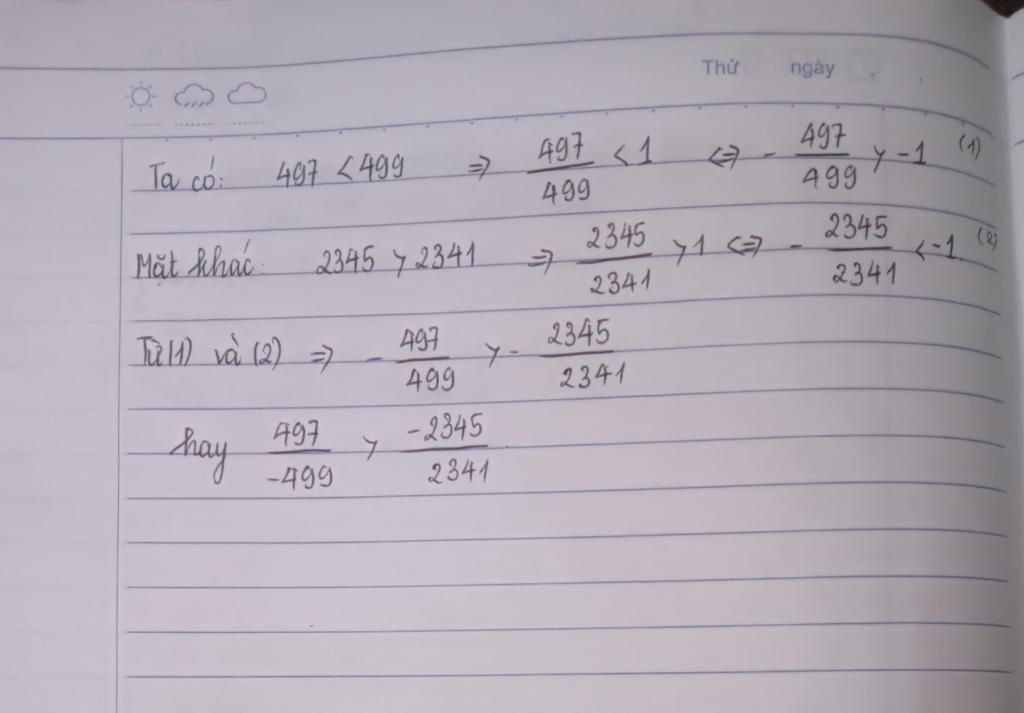 Thứ ngày
Ta có: 497 < 499 => 497/499 < 1 <=> - 497/499 > -1 (1)
Mặt khác: 2345 > 2341 => 2345/2341 > 1 <=> - 2345/2341 < -1 (2)
Từ (1) và (2) => - 497/499 > - 2345/2341
hay 497/-499 > -2345/2341